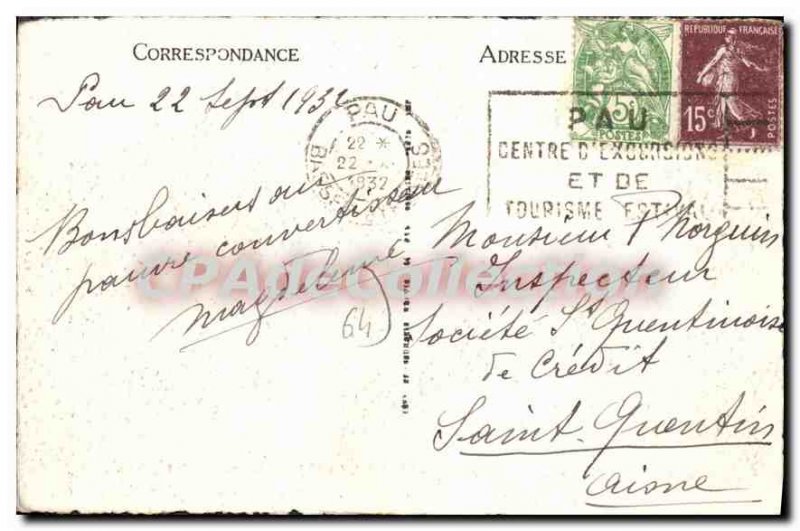 CORRESPONDANCE
Pau 22 Sept 1932
Bonsbaisers au
pauvre convertisseur
64
ADRESSE
5c
POSTES
REPUBLIQUE FRANÇAISE
15c
POSTES
PAU
22
22
1932
PAU
CENTRE D'EXCURSIONS
ET DE
TOURISME ESTIVAL
Monsieur
Inspecteur
Société St Quentinoise
de Crédit
Saint-Quentin
Aisne
CPAdeCollection